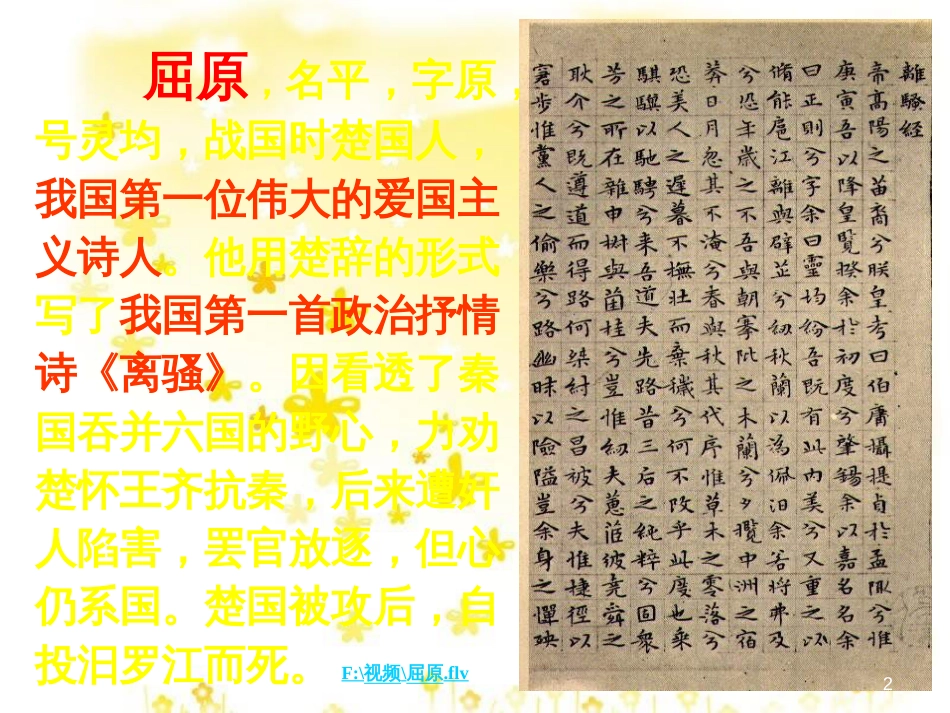 屈原，名平，字原，
号灵均，战国时楚国人，
我国第一位伟大的爱国主
义诗人。他用楚辞的形式
写了我国第一首政治抒情
诗《离骚》。因看透了秦
国吞并六国的野心，力劝
楚怀王齐抗秦，后来遭奸
人陷害，罢官放逐，但心
仍系国。楚国被攻后，自
投汨罗江而死。
F:\视频\屈原.flv
離騷經
帝高陽之苗裔兮朕皇考曰伯庸攝提貞於孟陬兮惟
庚寅吾以降皇覽揆余於初度兮肇錫余以嘉名名余
曰正則兮字余曰靈均紛吾既有此內美兮又重之以
脩能扈江離與辟芷兮紉秋蘭以為佩汩余若將弗及
兮恐年歲之不吾與朝搴阰之木蘭兮夕攬中洲之宿
莽日月忽其不淹兮春與秋其代序惟草木之零落兮
恐美人之遲暮不撫壯而棄穢兮何不改乎此度也乘
騏驥以馳騁兮来吾道夫先路昔三后之純粹兮固衆
芳之所在雜申樹與菌桂兮豈惟紉夫蕙茝彼堯舜之
耿介兮既遵道而得路何桀紂之昌被兮夫惟捷徑以
窘步惟黨人之偷樂兮路幽昧以險隘豈余身之憚殃
2